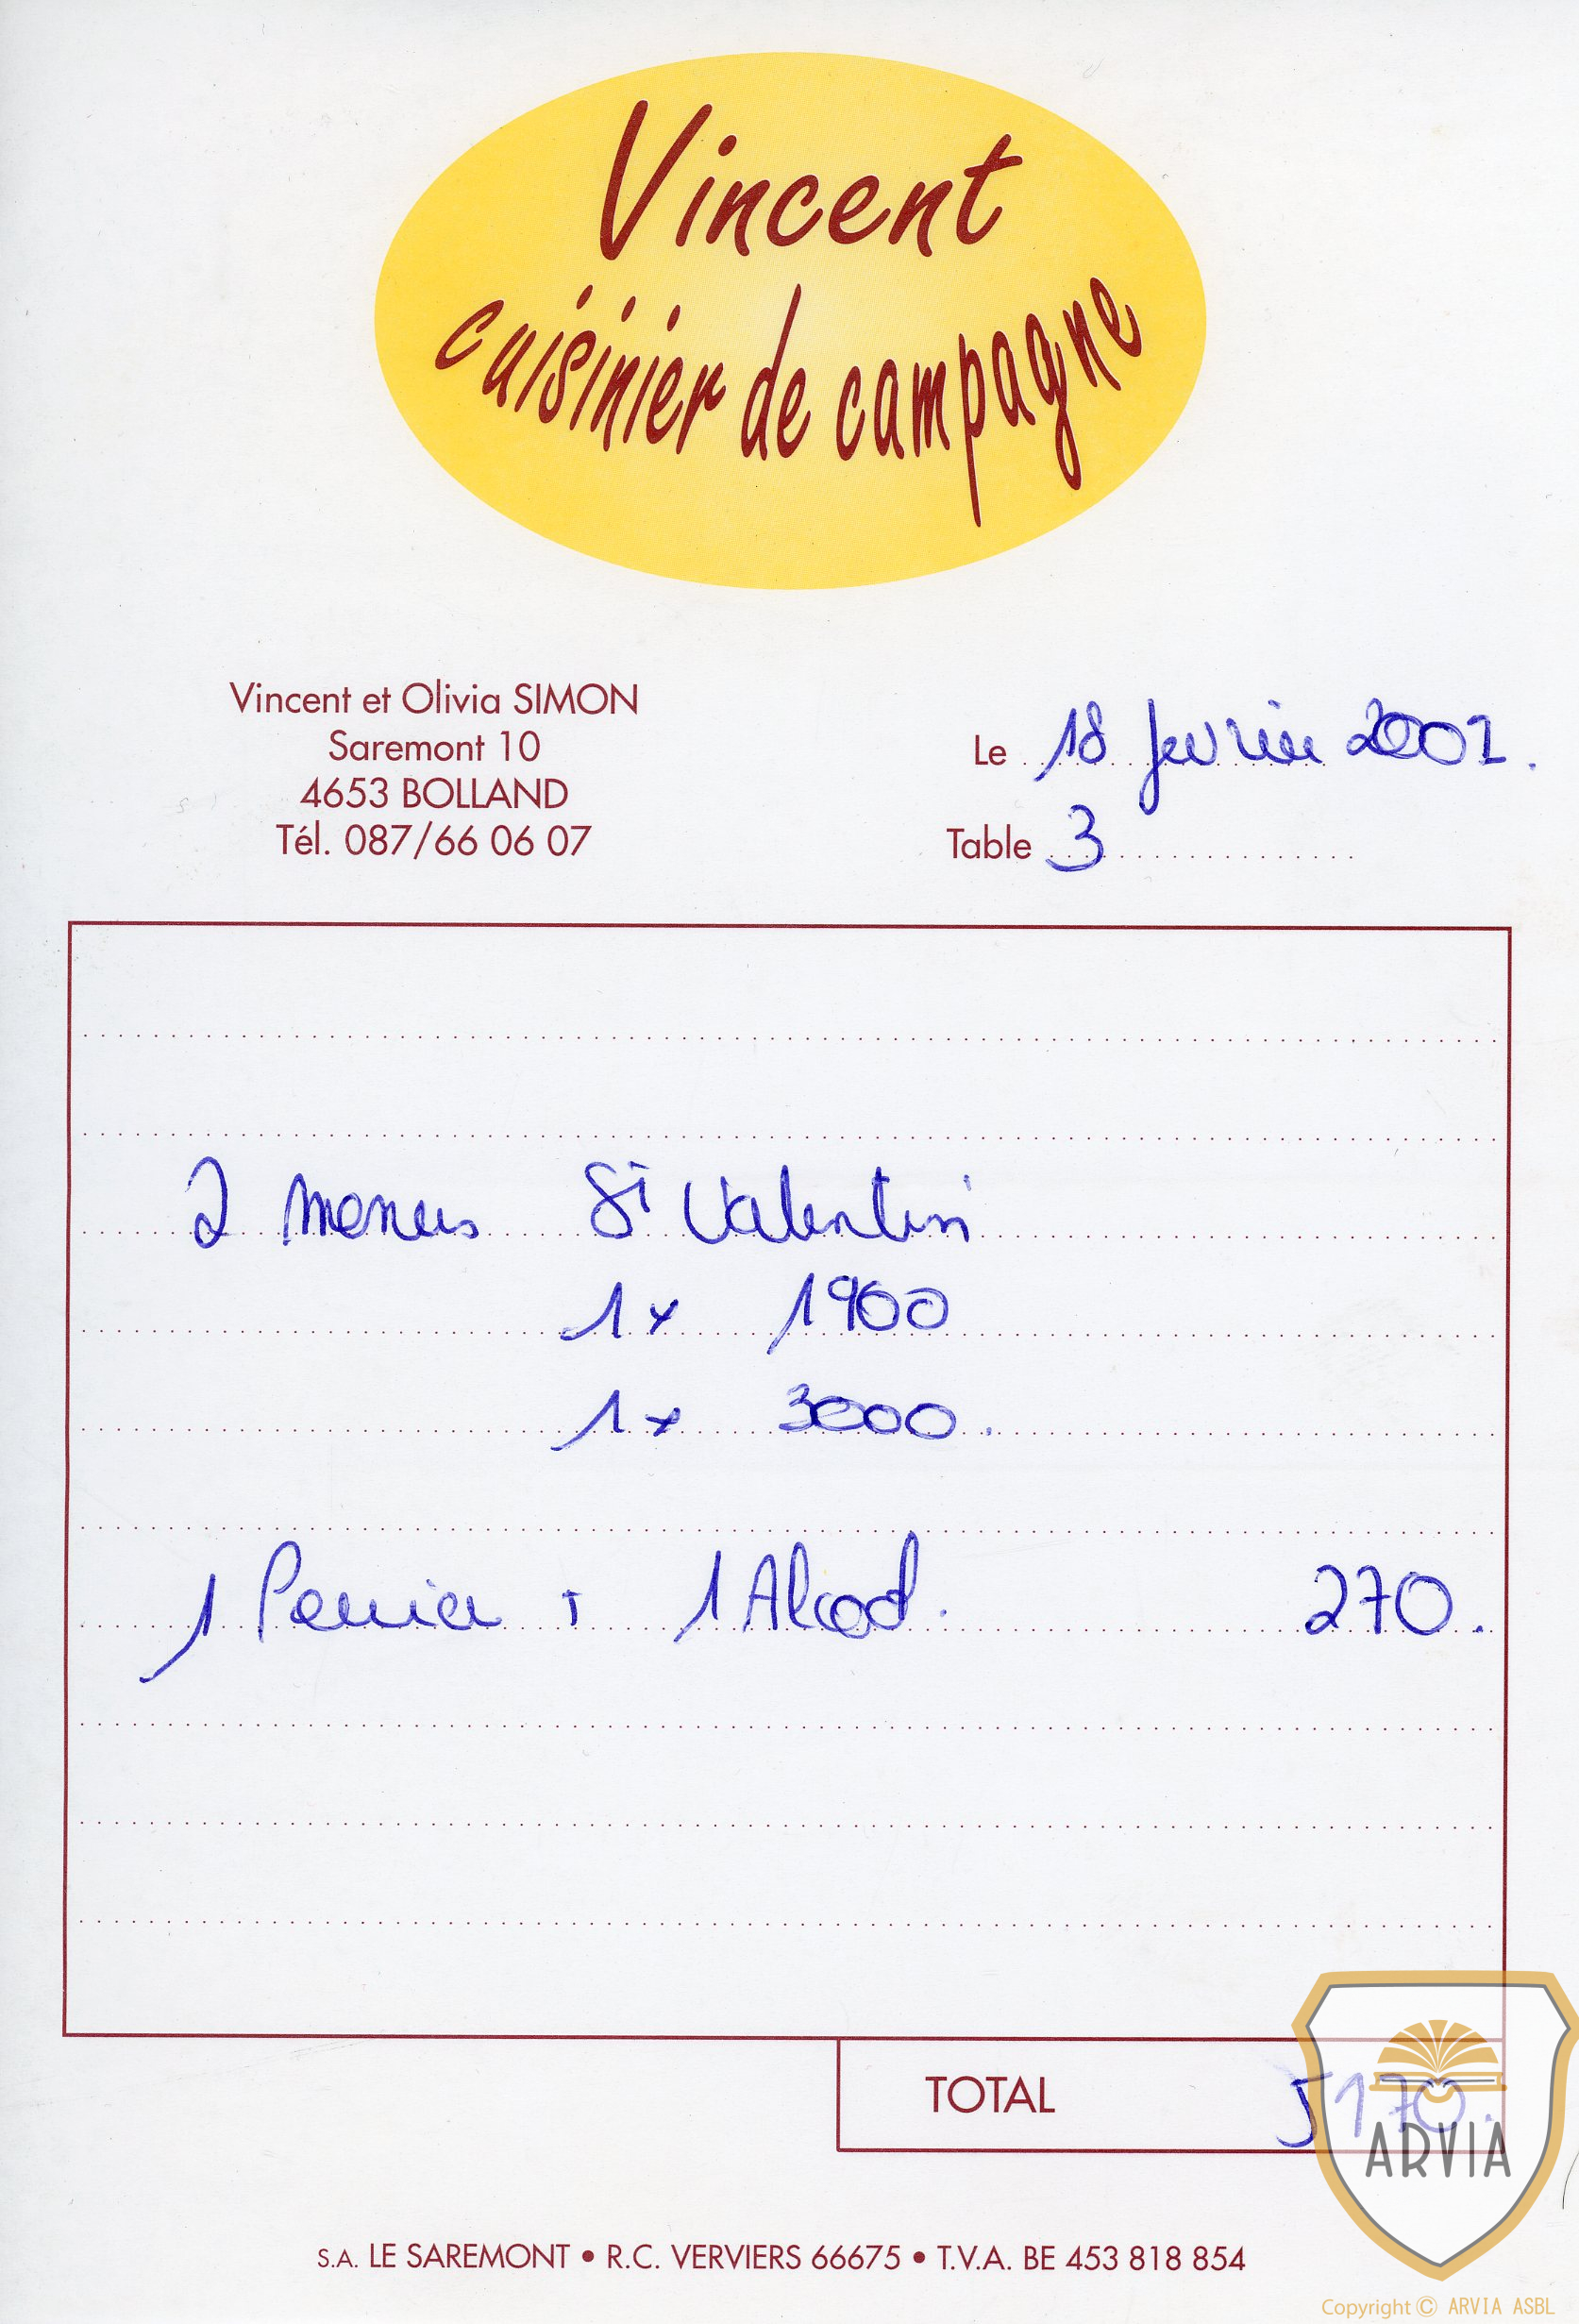 Vincent
cuisinier de campagne
Vincent et Olivia SIMON
Saremont 10
4653 BOLLAND
Tél. 087/66 06 07
Le 18 fevrier 2001.
Table 3
2 menus St Valentin
1x 1900
1x 3000.
1 Perrier + 1 Alcool. 270.
TOTAL 5170.
ARVIA
S.A. LE SAREMONT • R.C. VERVIERS 66675 • T.V.A. BE 453 818 854
Copyright © ARVIA ASBL